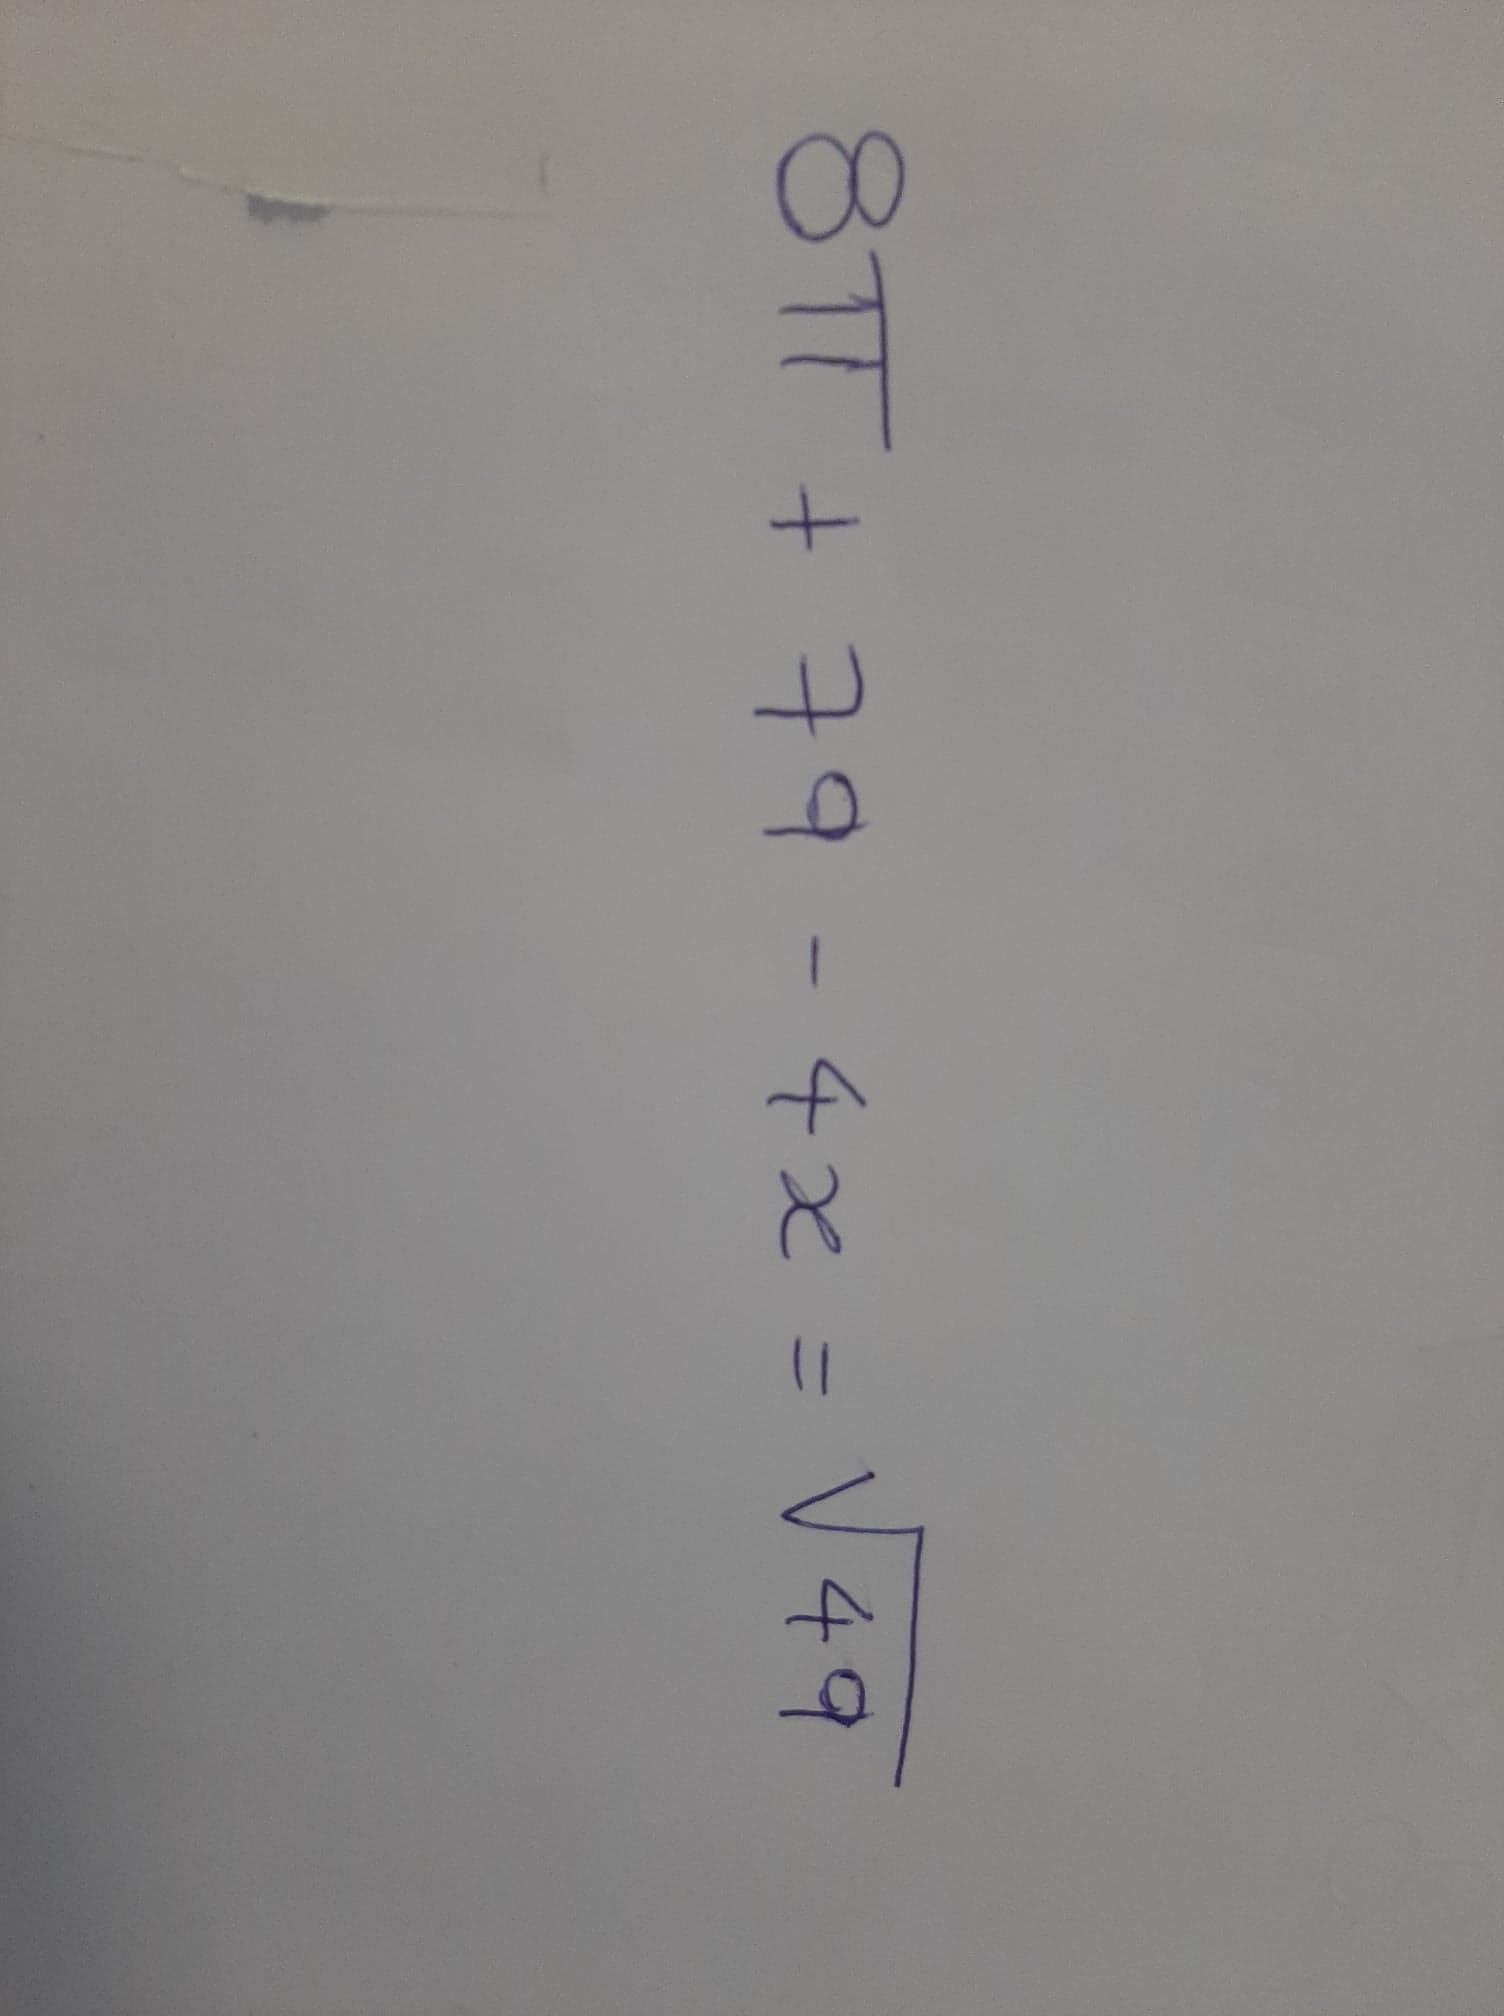 8π + 79 - 4x = √49